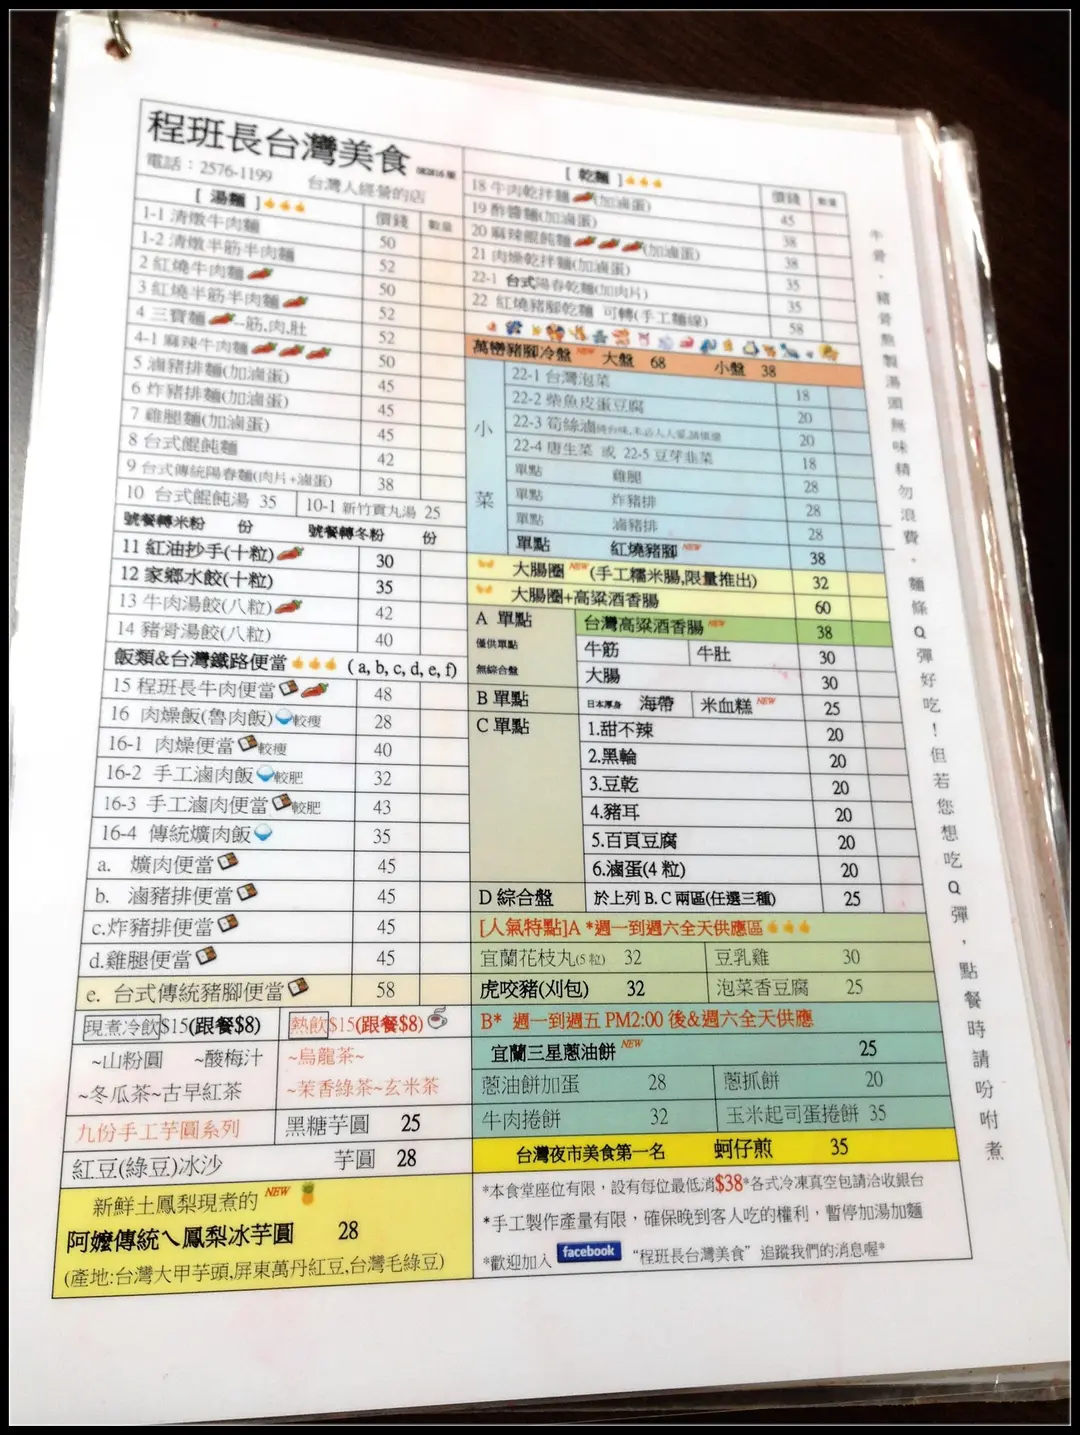 程班長台灣美食
電話：2576-1199 台灣人經營的店
[ 湯麵 ] 價錢 數量
1-1 清燉牛肉麵 50
1-2 清燉半筋半肉麵 52
2 紅燒牛肉麵 50
3 紅燒半筋半肉麵 52
4 三寶麵--筋,肉,肚 52
4-1 麻辣牛肉麵 50
5 滷豬排麵(加滷蛋) 45
6 炸豬排麵(加滷蛋) 45
7 雞腿麵(加滷蛋) 45
8 台式餛飩麵 42
9 台式傳統陽春麵(肉片+滷蛋) 38
10 台式餛飩湯 35 10-1 新竹貢丸湯 25
號餐轉米粉 份 號餐轉冬粉 份
11 紅油抄手(十粒) 30
12 家鄉水餃(十粒) 35
13 牛肉湯餃(八粒) 42
14 豬骨湯餃(八粒) 40
飯類&台灣鐵路便當 ( a, b, c, d, e, f)
15 程班長牛肉便當 48
16 肉燥飯(魯肉飯)較瘦 28
16-1 肉燥便當較瘦 40
16-2 手工滷肉飯較肥 32
16-3 手工滷肉便當較肥 43
16-4 傳統爌肉飯 35
a. 爌肉便當 45
b. 滷豬排便當 45
c.炸豬排便當 45
d.雞腿便當 45
e. 台式傳統豬腳便當 58
現煮冷飲$15(跟餐$8) 熱飲$15(跟餐$8)
~山粉圓 ~酸梅汁 ~烏龍茶~
~冬瓜茶~古早紅茶 ~茉香綠茶~玄米茶
九份手工芋圓系列 黑糖芋圓 25
紅豆(綠豆)冰沙 芋圓 28
新鮮土鳳梨現煮的 NEW
阿嬤傳統ㄟ鳳梨冰芋圓 28
(產地:台灣大甲芋頭,屏東萬丹紅豆,台灣毛綠豆)
[ 乾麵 ] 價錢 數量
18 牛肉乾拌麵(加滷蛋) 45
19 酢醬麵(加滷蛋) 38
20 麻辣餛飩麵(加滷蛋) 38
21 肉燥乾拌麵(加滷蛋) 35
22-1 台式陽春乾麵(加肉片) 35
22 紅燒豬腳乾麵 可轉(手工麵線) 58
萬巒豬腳冷盤 NEW 大盤 68 小盤 38
小菜
22-1 台灣泡菜 18
22-2 柴魚皮蛋豆腐 20
22-3 筍絲滷 20
22-4 唐生菜 或 22-5 豆芽韭菜 18
單點 雞腿 28
單點 炸豬排 28
單點 滷豬排 28
單點 紅燒豬腳 NEW 38
大腸圈 NEW (手工糯米腸,限量推出) 32
大腸圈+高粱酒香腸 60
A 單點 台灣高粱酒香腸 NEW 38
僅供單點 牛筋 牛肚 30
無綜合盤 大腸 30
B 單點 日本厚身 海帶 米血糕 NEW 25
C 單點 1.甜不辣 20
2.黑輪 20
3.豆乾 20
4.豬耳 20
5.百頁豆腐 20
6.滷蛋(4 粒) 20
D 綜合盤 於上列 B. C 兩區(任選三種) 25
[人氣特點]A *週一到週六全天供應區
宜蘭花枝丸(5 粒) 32 豆乳雞 30
虎咬豬(刈包) 32 泡菜香豆腐 25
B* 週一到週五 PM2:00 後&週六全天供應
宜蘭三星蔥油餅 NEW 25
蔥油餅加蛋 28 蔥抓餅 20
牛肉捲餅 32 玉米起司蛋捲餅 35
台灣夜市美食第一名 蚵仔煎 35
*本食堂座位有限，設有每位最低消$38*各式冷凍真空包請洽收銀台
*手工製作產量有限，確保晚到客人吃的權利，暫停加湯加麵
*歡迎加入 facebook “程班長台灣美食” 追蹤我們的消息喔*
牛骨、豬骨熬製湯頭無味精勿浪費，麵條Q彈好吃！但若您想吃Q彈，點餐時請吩咐煮